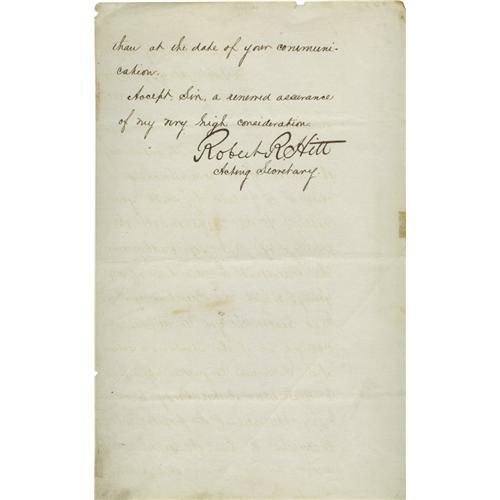 than at the date of your communi-
cation.
Accept, Sir, a renewed assurance
of my very high consideration.
Robert R. Hitt
Acting Secretary.